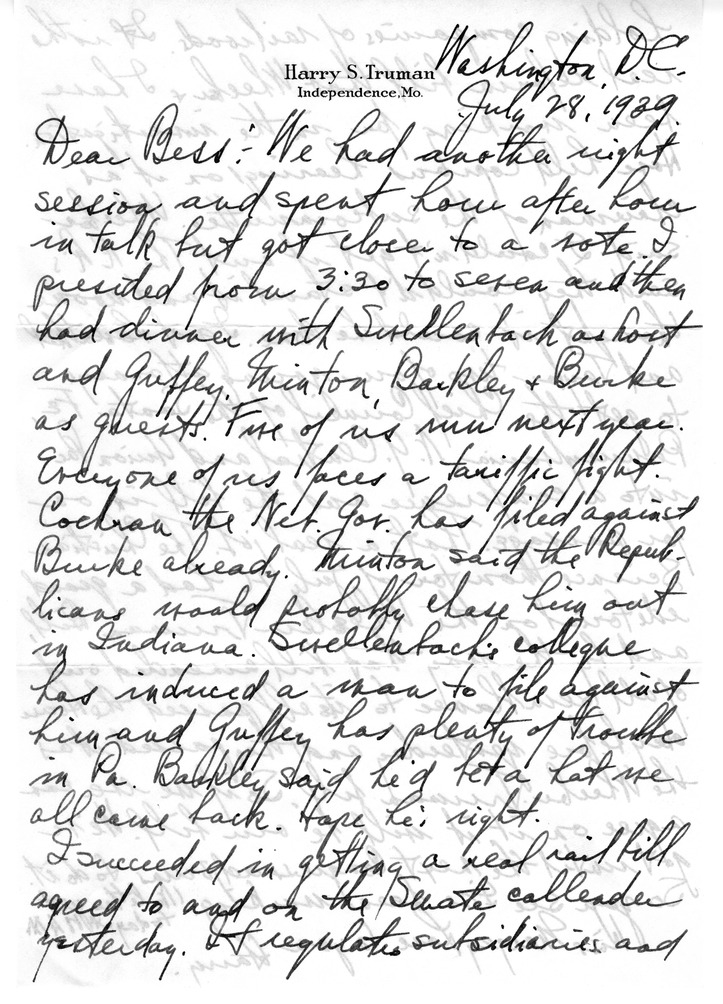 Harry S. Truman
Independence, Mo.
Washington, D.C.
July 28, 1939.
Dear Bess:- We had another night
session and spent hour after hour
in talk but got closer to a vote. I
presided from 3:30 to seven and then
had dinner with Swellenbach as host
and Guffey, Minton, Barkley + Burke
as guests. Five of us run next year.
Everyone of us faces a tariffic fight.
Cochran the Neb. Gov. has filed against
Burke already. Minton said the Repub-
licans would probably chase him out
in Indiana. Swellenbach's collegue
has induced a man to file against
him and Guffey has plenty of trouble
in Pa. Barkley said he'd bet a hat we
all came back. Hope he's right.
I succeeded in getting a real rail bill
agreed to and on the Senate callender
yesterday. It regulates subsidiaries and